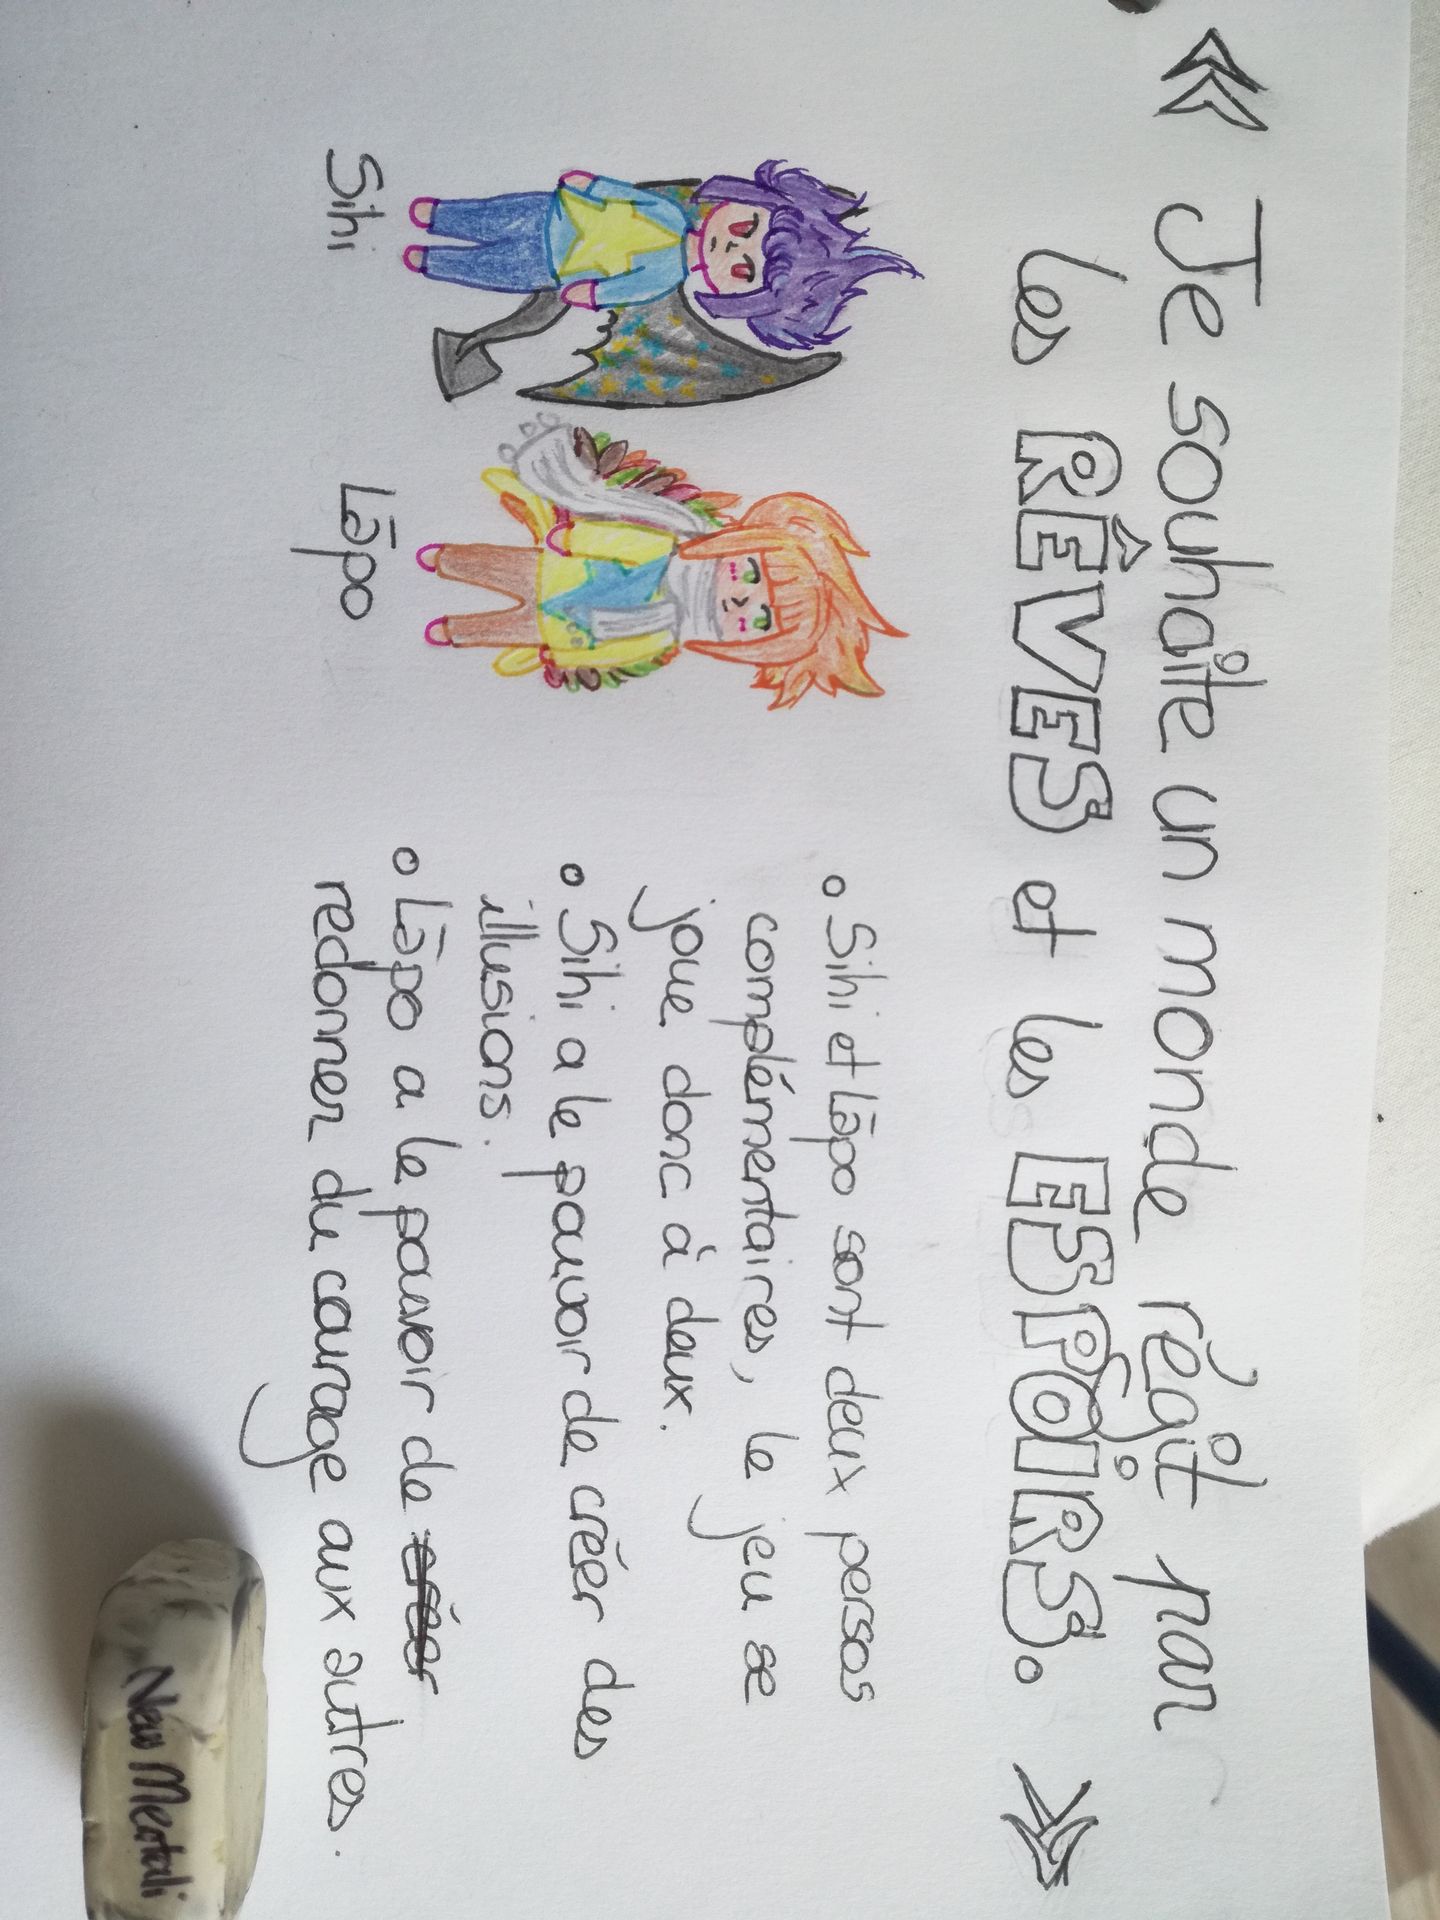 « Je souhaite un monde régit par
les RÊVES et les ESPOIRS. »
Sihi
Lāpo
• Sihi et Lāpo sont deux persos
complémentaires, le jeu se
joue donc à deux.
• Sihi a le pouvoir de créer des
illusions.
• Lāpo a le pouvoir de créer
redonner du courage aux autres.